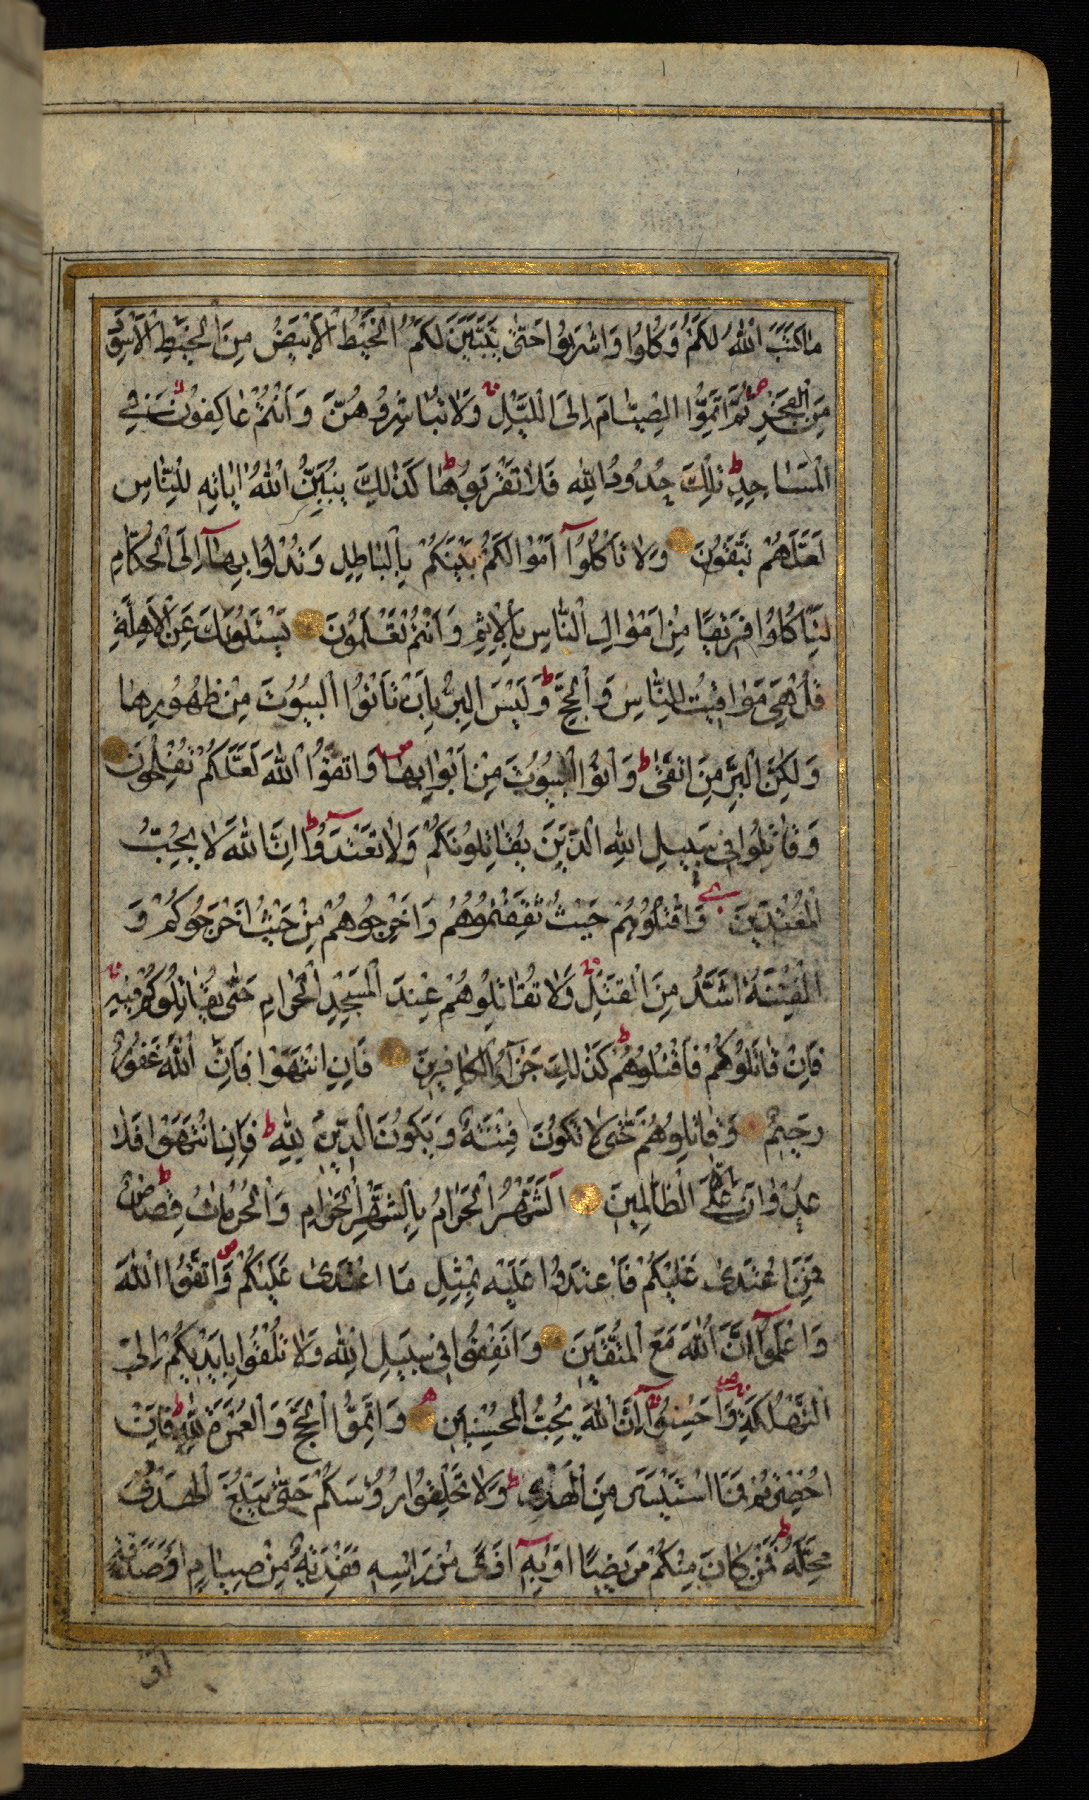 مَا كَتَبَ اللّٰهُ لَكُمْ وَكُلُوا وَاشْرَبُوا حَتّٰى يَتَبَيَّنَ لَكُمُ الْخَيْطُ الْاَبْيَضُ مِنَ الْخَيْطِ الْاَسْوَدِ
مِنَ الْفَجْرِ ص ثُمَّ اَتِمُّوا الصِّيَامَ اِلَى الَّيْلِ وَلَا تُبَاشِرُوهُنَّ وَاَنْتُمْ عَاكِفُونَ لا فِي
الْمَسَاجِدِ ط تِلْكَ حُدُودُ اللّٰهِ فَلَا تَقْرَبُوهَا ط كَذٰلِكَ يُبَيِّنُ اللّٰهُ اٰيَاتِهِ لِلنَّاسِ
لَعَلَّهُمْ يَتَّقُونَ وَلَا تَأْكُلُوآ اَمْوَالَكُمْ بَيْنَكُمْ بِالْبَاطِلِ وَتُدْلُوا بِهَآ اِلَى الْحُكَّامِ
لِتَأْكُلُوا فَرِيقًا مِنْ اَمْوَالِ النَّاسِ بِالْاِثْمِ وَاَنْتُمْ تَعْلَمُونَ يَسْئَلُونَكَ عَنِ الْاَهِلَّةِ
قُلْ هِيَ مَوَاقِيتُ لِلنَّاسِ وَالْحَجِّ ط وَلَيْسَ الْبِرُّ بِاَنْ تَأْتُوا الْبُيُوتَ مِنْ ظُهُورِهَا
وَلٰكِنَّ الْبِرَّ مَنِ اتَّقٰى ط وَأْتُوا الْبُيُوتَ مِنْ اَبْوَابِهَا ص وَاتَّقُوا اللّٰهَ لَعَلَّكُمْ تُفْلِحُونَ
وَقَاتِلُوا فِي سَبِيلِ اللّٰهِ الَّذِينَ يُقَاتِلُونَكُمْ وَلَا تَعْتَدُوا ط اِنَّ اللّٰهَ لَا يُحِبُّ
الْمُعْتَدِينَ وَاقْتُلُوهُمْ حَيْثُ ثَقِفْتُمُوهُمْ وَاَخْرِجُوهُمْ مِنْ حَيْثُ اَخْرَجُوكُمْ وَ
الْفِتْنَةُ اَشَدُّ مِنَ الْقَتْلِ وَلَا تُقَاتِلُوهُمْ عِنْدَ الْمَسْجِدِ الْحَرَامِ حَتّٰى يُقَاتِلُوكُمْ فِيهِ
فَاِنْ قَاتَلُوكُمْ فَاقْتُلُوهُمْ ط كَذٰلِكَ جَزَآءُ الْكَافِرِينَ فَاِنِ انْتَهَوْا فَاِنَّ اللّٰهَ غَفُورٌ
رَحِيمٌ وَقَاتِلُوهُمْ حَتّٰى لَا تَكُونَ فِتْنَةٌ وَيَكُونَ الدِّينُ لِلّٰهِ ط فَاِنِ انْتَهَوْا فَلَا
عُدْوَانَ اِلَّا عَلَى الظَّالِمِينَ اَلشَّهْرُ الْحَرَامُ بِالشَّهْرِ الْحَرَامِ وَالْحُرُمَاتُ قِصَاصٌ ط
فَمَنِ اعْتَدٰى عَلَيْكُمْ فَاعْتَدُوا عَلَيْهِ بِمِثْلِ مَا اعْتَدٰى عَلَيْكُمْ ص وَاتَّقُوا اللّٰهَ
وَاعْلَمُوآ اَنَّ اللّٰهَ مَعَ الْمُتَّقِينَ وَاَنْفِقُوا فِي سَبِيلِ اللّٰهِ وَلَا تُلْقُوا بِاَيْدِيكُمْ اِلَى
التَّهْلُكَةِ وَاَحْسِنُوآ اِنَّ اللّٰهَ يُحِبُّ الْمُحْسِنِينَ وَاَتِمُّوا الْحَجَّ وَالْعُمْرَةَ لِلّٰهِ ط فَاِنْ
اُحْصِرْتُمْ فَمَا اسْتَيْسَرَ مِنَ الْهَدْيِ ط وَلَا تَحْلِقُوا رُؤُسَكُمْ حَتّٰى يَبْلُغَ الْهَدْيُ
مَحِلَّهُ ط فَمَنْ كَانَ مِنْكُمْ مَرِيضًا اَوْ بِهِ اَذًى مِنْ رَأْسِهِ فَفِدْيَةٌ مِنْ صِيَامٍ اَوْ صَدَقَةٍ
او